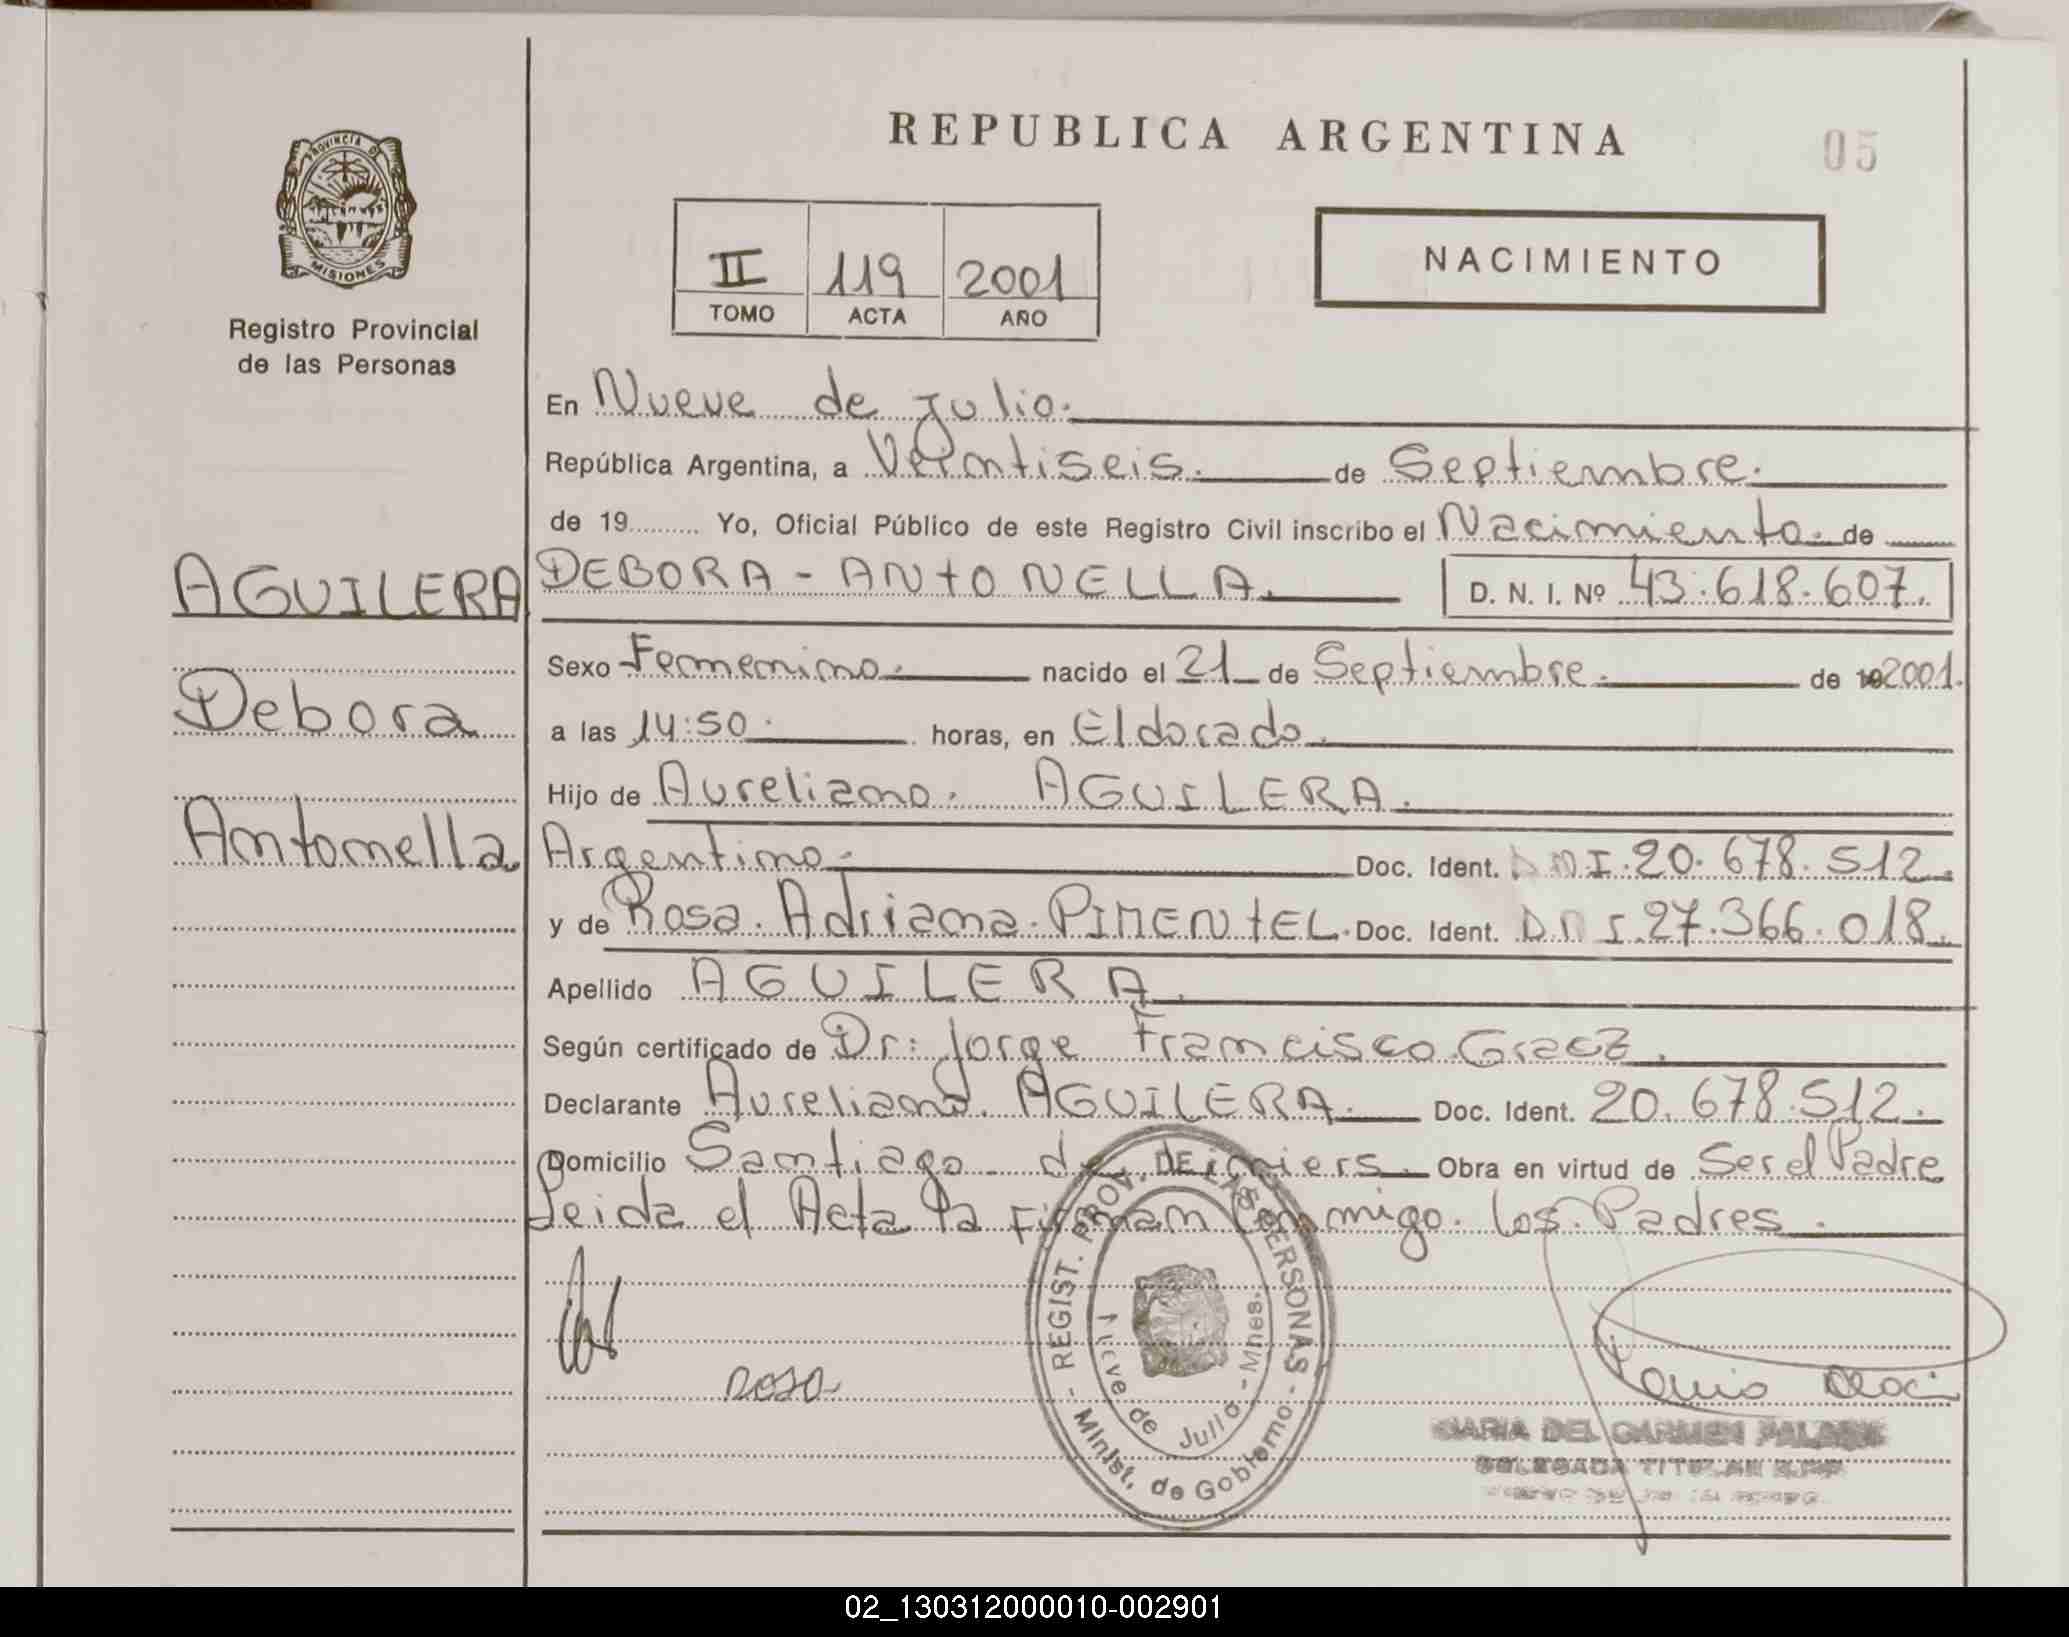 REPUBLICA ARGENTINA
05
PROVINCIA DE
MISIONES
Registro Provincial
de las Personas
II 119 2001
TOMO ACTA AÑO
NACIMIENTO
En Nueve de Julio.
República Argentina, a Veintiseis. de Septiembre.
de 19 Yo, Oficial Público de este Registro Civil inscribo el Nacimiento. de
AGUILERA
Debora
Antonella
DEBORA - ANTONELLA. D. N. I. Nº 43.618.607.
Sexo Femenino. nacido el 21 de Septiembre. de 19 2001.
a las 14:50. horas, en Eldorado.
Hijo de Aureliano. AGUILERA.
Argentino. Doc. Ident. DNI.20.678.512.
y de Rosa. Adriana. PIMENTEL. Doc. Ident. DNI.27.366.018.
Apellido AGUILERA.
Según certificado de Dr: Jorge Francisco
Declarante Aureliano. AGUILERA. Doc. Ident. 20.678.512.
Domicilio Santiago de Liniers. Obra en virtud de Ser el Padre
Leida el Acta la Firman Conmigo. los Padres.
ROSA
REGIST. PROV. DE LAS PERSONAS
Minist. de Gobierno
Nueve de Julio - Mnes.
MARIA DEL CARMEN
DELEGADA TITULAR
02_130312000010-002901